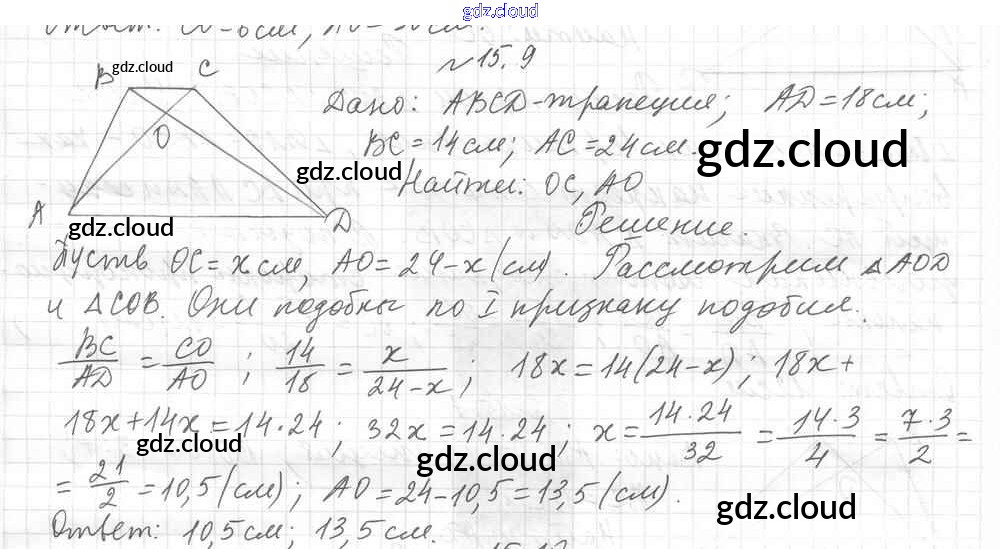 gdz.cloud
Ответ: CO-6см, AO-
№15.9
B gdz.cloud C
Дано: ABCD-трапеция; AD=18см;
O BC=14см; AC=24см. gdz.cloud
gdz.cloud Найти: OC, AO
A gdz.cloud D Решение.
Пусть OC=x см, AO=24-x(см). Рассмотрим △AOD
и △COB. Они подобны по I признаку подобия.
BC/AD = CO/AO; 14/18 = x/24-x; 18x=14(24-x); 18x+
18x+14x=14·24; 32x=14·24; x=14·24/32 = 14·3/4 = 7·3/2 =
gdz.cloud gdz.cloud
= 21/2 = 10,5(см); AO=24-10,5=13,5(см).
gdz.cloud
Ответ: 10,5см; 13,5см.